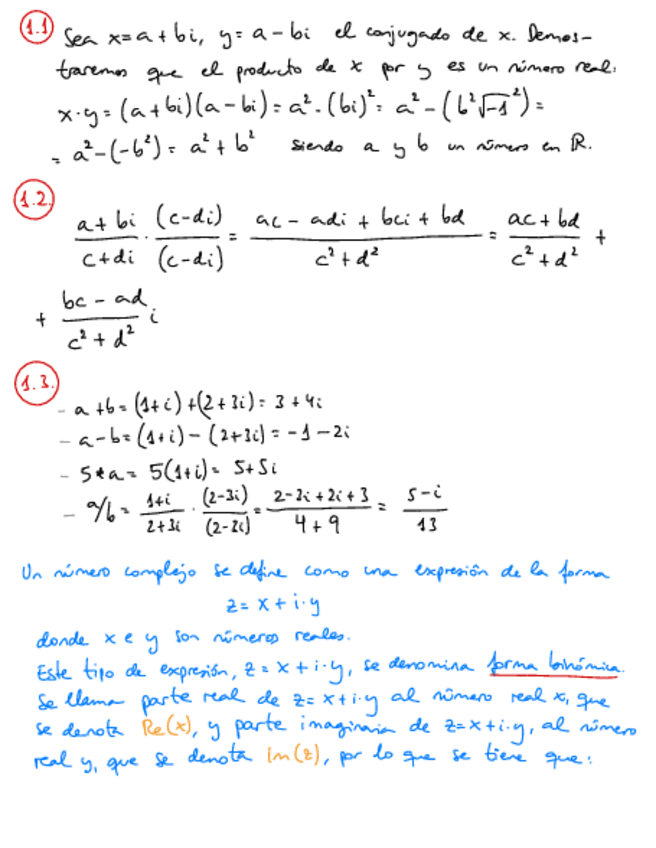 1.1 Sea x=a+bi, y=a-bi el conjugado de x. Demos-
traremos que el producto de x por y es un número real:
x·y=(a+bi)(a-bi)=a²-(bi)²= a²-(b²√-1²)=
= a²-(-b²)= a²+b² siendo a y b un número en ℝ.
1.2. (a+bi)/(c+di) · (c-di)/(c-di) = (ac-adi+bci+bd)/(c²+d²) = (ac+bd)/(c²+d²) +
+ (bc-ad)/(c²+d²) i
1.3.
- a+b=(1+i)+(2+3i)= 3+4i
- a-b=(1+i)-(2+3i)=-1-2i
- 5*a= 5(1+i)= 5+5i
- a/b= (1+i)/(2+3i) · (2-3i)/(2-2i) = (2-3i+2i+3)/(4+9) = (5-i)/13
Un número complejo se define como una expresión de la forma
z=x+i·y
donde x e y son números reales.
Este tipo de expresión, z=x+i·y, se denomina forma binómica.
Se llama parte real de z=x+i·y al número real x, que
se denota Re(x), y parte imaginaria de z=x+i·y, al número
real y, que se denota Im(z), por lo que se tiene que: